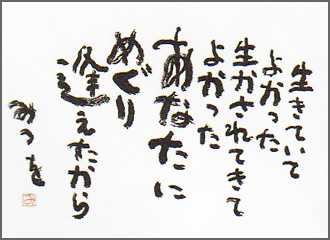 生きていて
よかった
生かされてきて
よかった
あなたに
めぐり
逢えたから
みつを